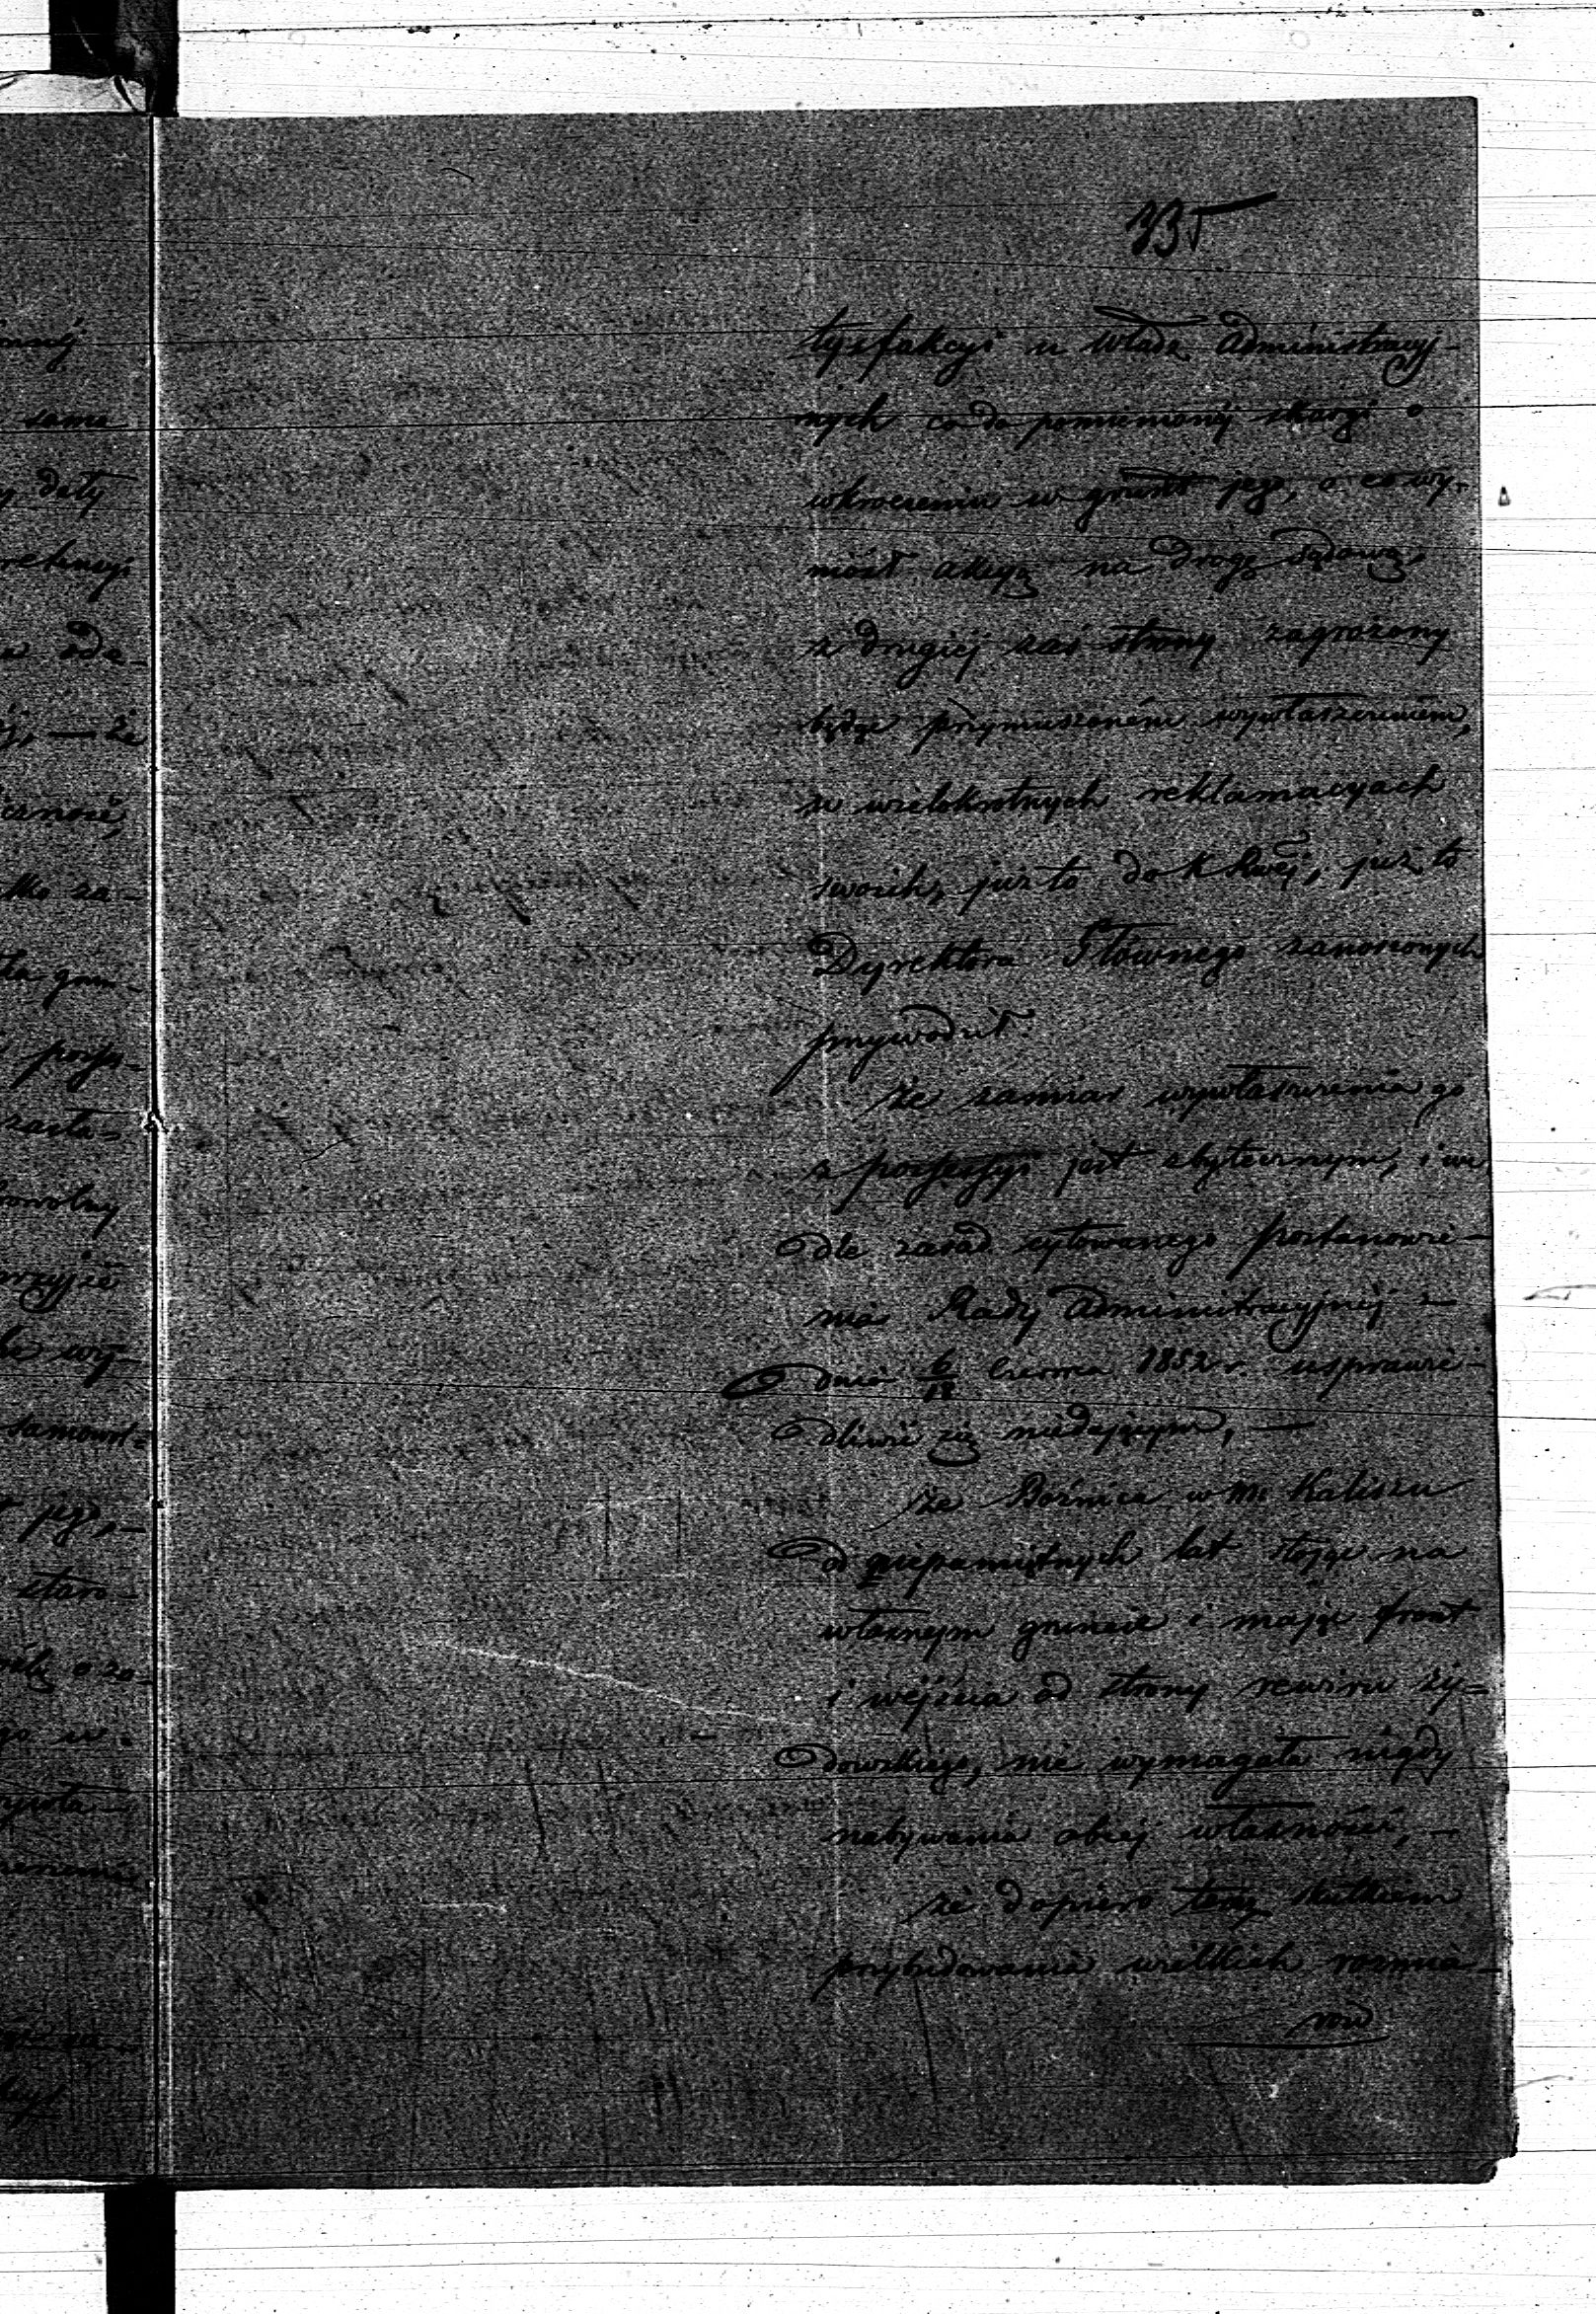 335
tysfakcyi u władz Administracyj-
nych co do pomienionej skargi o
wkroczenie w grunt jego, o co wy-
niósł akcyą na drogę sądową,
z drugiej zaś strony zagrożony
będąc przymuszoném wywłaszczeniem,
w wielokrotnych reklamacyach
swoich, już to do K Rwej, już to
Dyrektora Głównego zanoszonych
przywodził.
że zamiar wywłaszczenia go
z possessyi jest zbytecznym, i we-
dle zasad cytowanego postanowie-
nia Rady Administracyjnej z
dnia 6/18 Czerwca 1852 r. usprawie-
dliwić się niedającym, —
że Bożnica w M. Kaliszu
od niepamiętnych lat stojąc na
własnym gruncie i mając front
i wejścia od strony rewiru ży=
dowskiego, nie wymagała nigdy
nabywania obcej własności, —
że dopiero teraz skutkiem
przybudowania wielkich rozmia-
rów
inny
same
y daty
retensyi
a ode-
j, — że
czność,
lko za-
ka grun-
posse-
zasta-
owolny
przyjść
be wy-
samowol=
t jego, —
staro-
o za-
go w